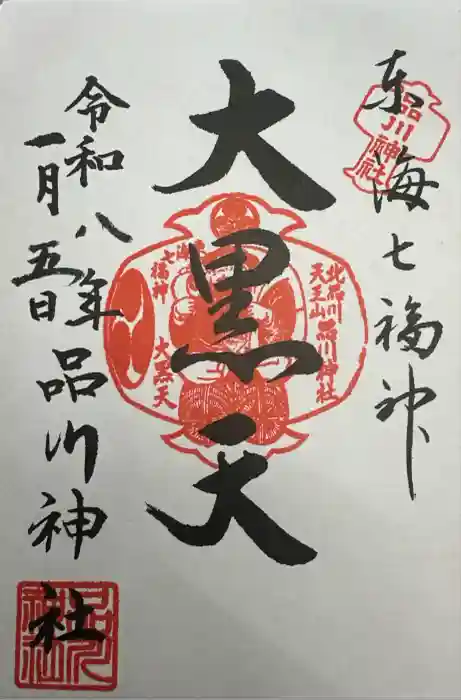 東海七福神
品川神社
大黒天
北品川
天王山
品川神社
東海
七福神
大黒天
令和八年
一月五日
品川神社
品川神社